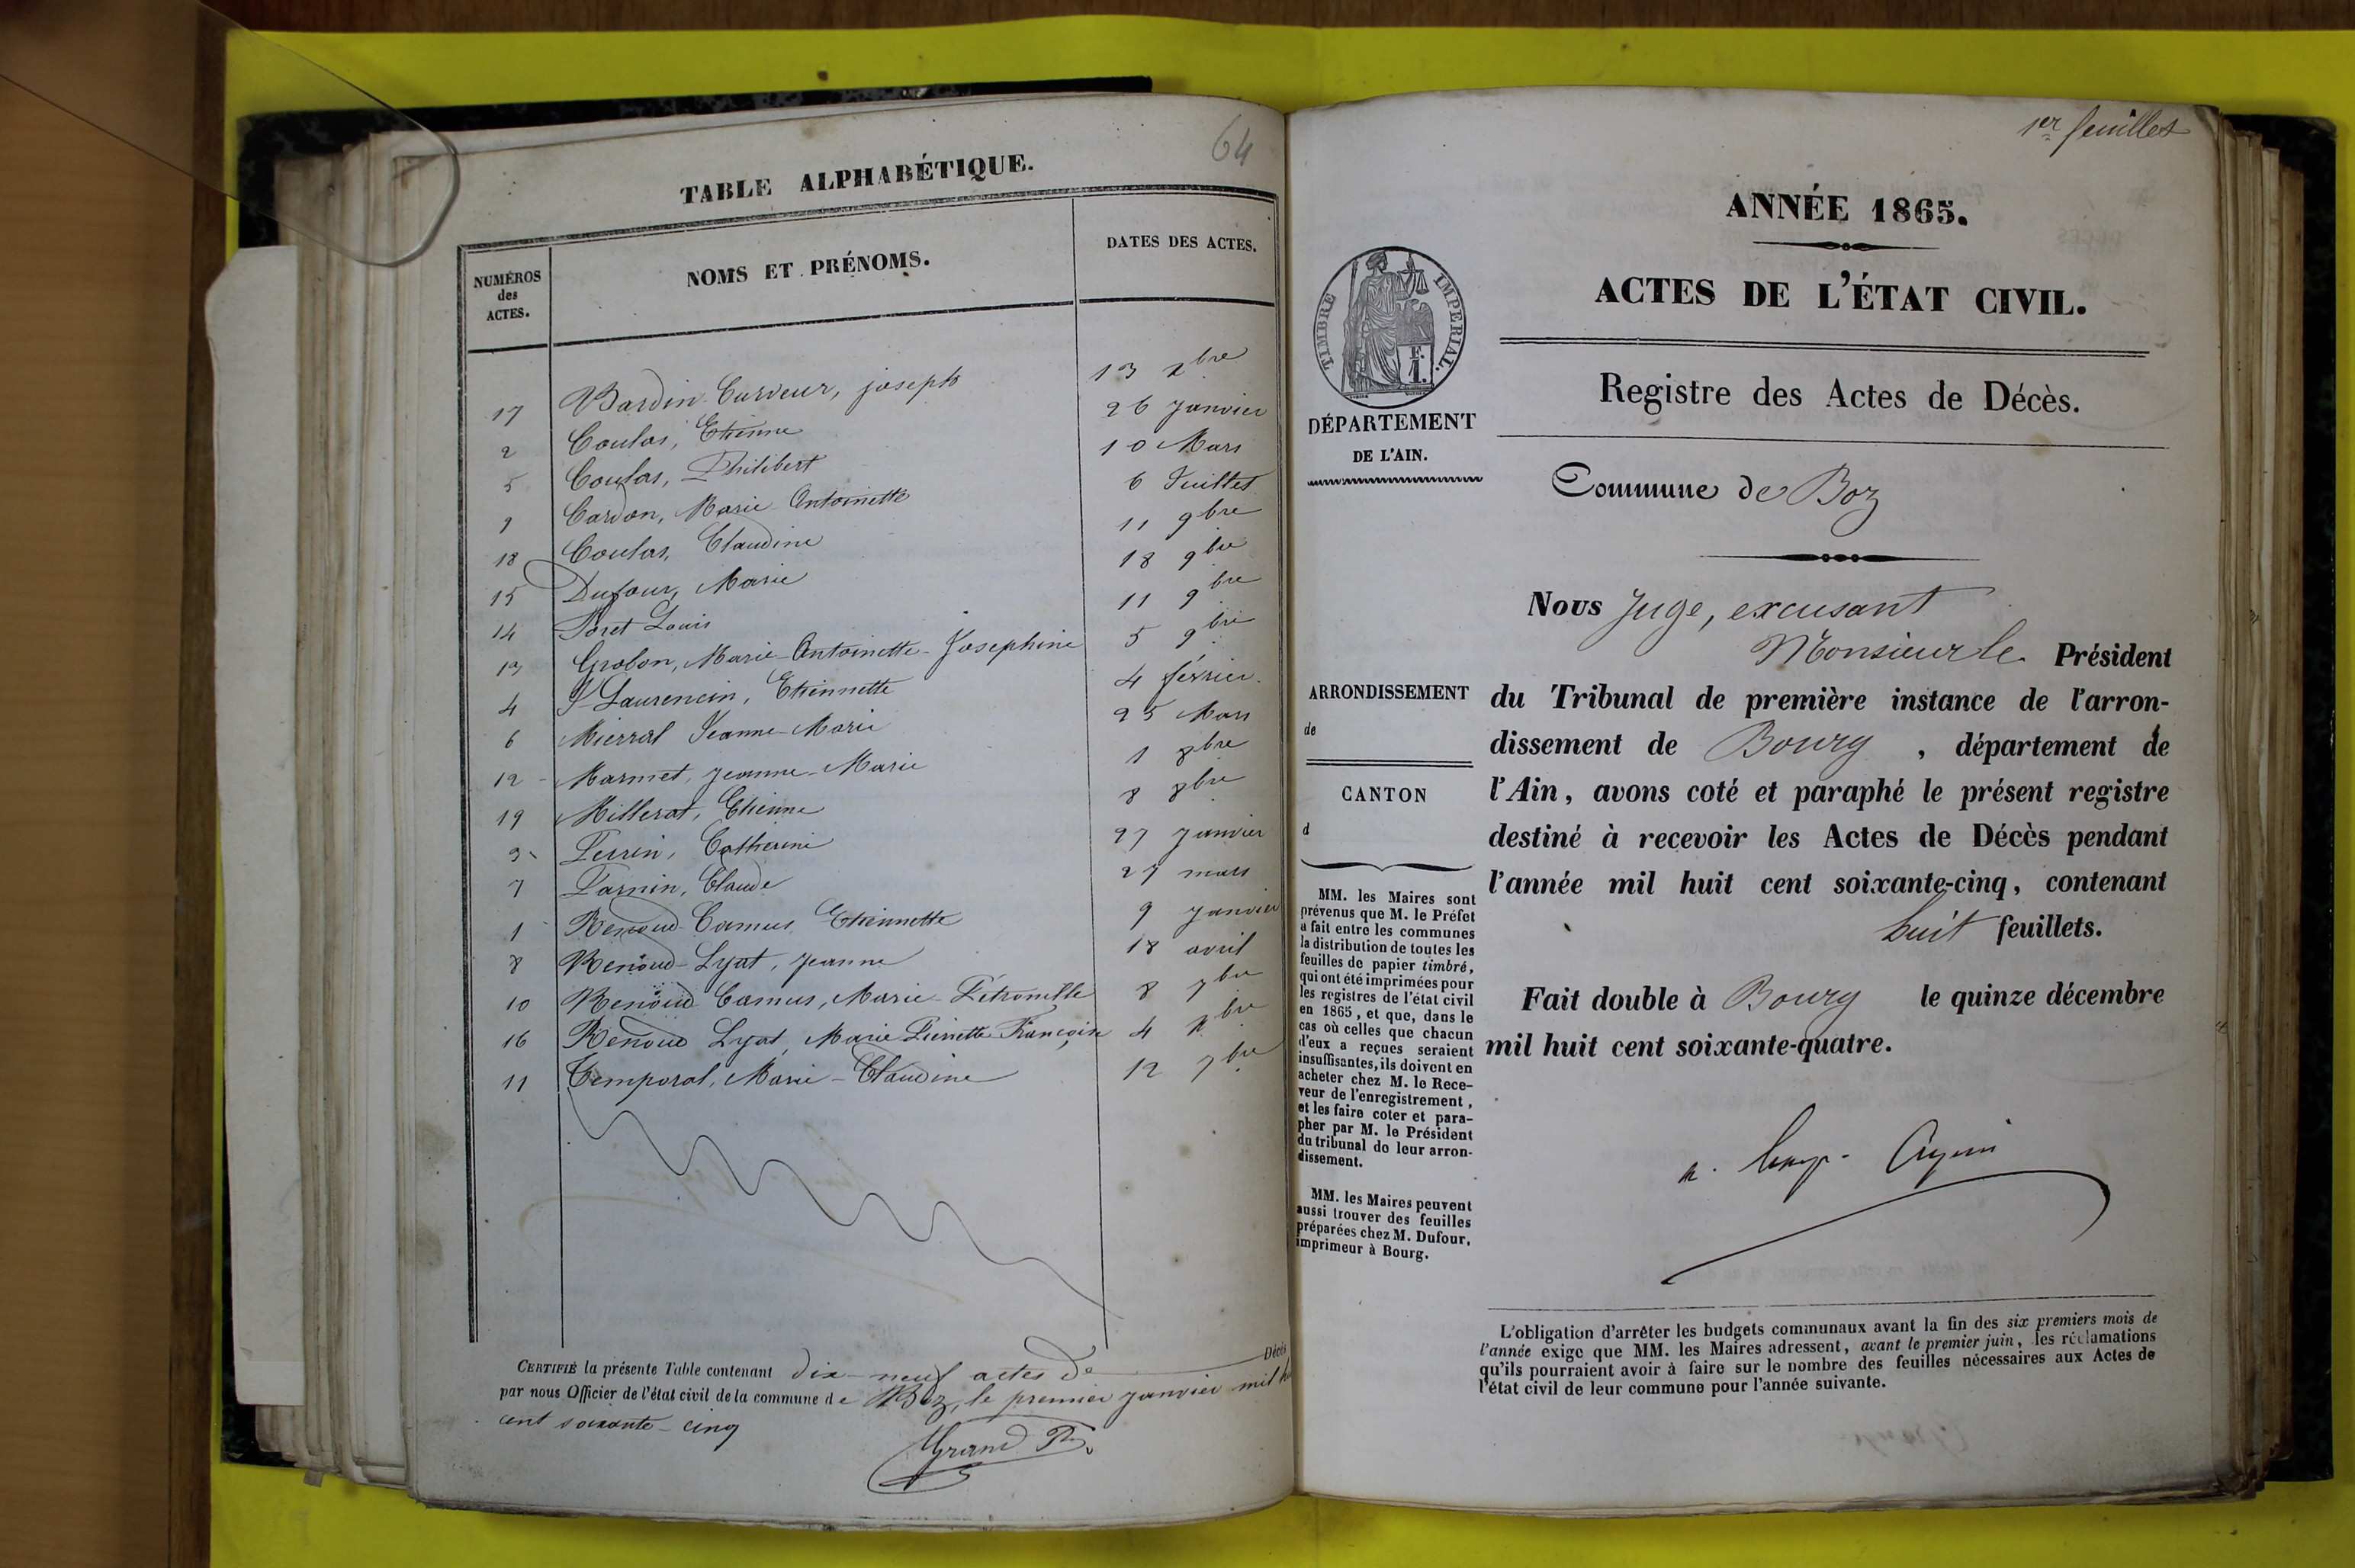 64
TABLE ALPHABÉTIQUE.
NUMÉROS
des
ACTES.
NOMS ET PRÉNOMS.
DATES DES ACTES.
17 Bardin Curveur, joseph 13 xbre
2 Coulas, Etienne 26 Janvier
5 Coulas, Philibert 10 Mars
9 Cardon, Marie Antoinette 6 Juillet
18 Coulas, Claudine 11 9bre
15 Dufour, Marie 18 9bre
14 Poret Louis 11 9bre
13 Grobon, Marie-Antoinette-Josephine 5 9bre
4 Laurencin, Etiennette 4 février
6 Mierral Jeanne-Marie 25 Mars
12 Marmet, Jeanne-Marie 1 8bre
19 Millerat, Etienne 8 8bre
3 Perrin, Catherine 27 Janvier
7 Parnin, Claude 27 mars
1 Renoud Camus Etiennette 9 Janvier
8 Renoud-Lyat, Jeanne 18 avril
10 Renoud Camus, Marie-Pétronille 8 7bre
16 Renoud Lyat, Marie Pierrette Françoise 4 xbre
11 Temporal, Marie-Claudine 12 7bre
CERTIFIÉ la présente Table contenant dix-neuf actes de Décès
par nous Officier de l'état civil de la commune de Boz, le premier janvier mil
cent soixante-cinq
Grand
1er feuillet
ANNÉE 1865.
ACTES DE L'ÉTAT CIVIL.
TIMBRE IMPERIAL.
F.
1.
DÉPARTEMENT
DE L'AIN.
Registre des Actes de Décès.
Commune de Boz
Nous Juge, excusant
Monsieur le Président
du Tribunal de première instance de l'arron-
dissement de Bourg, département de
l'Ain, avons coté et paraphé le présent registre
destiné à recevoir les Actes de Décès pendant
l'année mil huit cent soixante-cinq, contenant
huit feuillets.
Fait double à Bourg le quinze décembre
mil huit cent soixante-quatre.
ARRONDISSEMENT
de
CANTON
d
MM. les Maires sont
prévenus que M. le Préfet
a fait entre les communes
la distribution de toutes les
feuilles de papier timbré,
qui ont été imprimées pour
les registres de l'état civil
en 1865, et que, dans le
cas où celles que chacun
d'eux a reçues seraient
insuffisantes, ils doivent en
acheter chez M. le Rece-
veur de l'enregistrement,
et les faire coter et para-
pher par M. le Président
du tribunal de leur arron-
dissement.
MM. les Maires peuvent
aussi trouver des feuilles
préparées chez M. Dufour,
imprimeur à Bourg.
L'obligation d'arrêter les budgets communaux avant la fin des six premiers mois de
l'année exige que MM. les Maires adressent, avant le premier juin, les réclamations
qu'ils pourraient avoir à faire sur le nombre des feuilles nécessaires aux Actes de
l'état civil de leur commune pour l'année suivante.